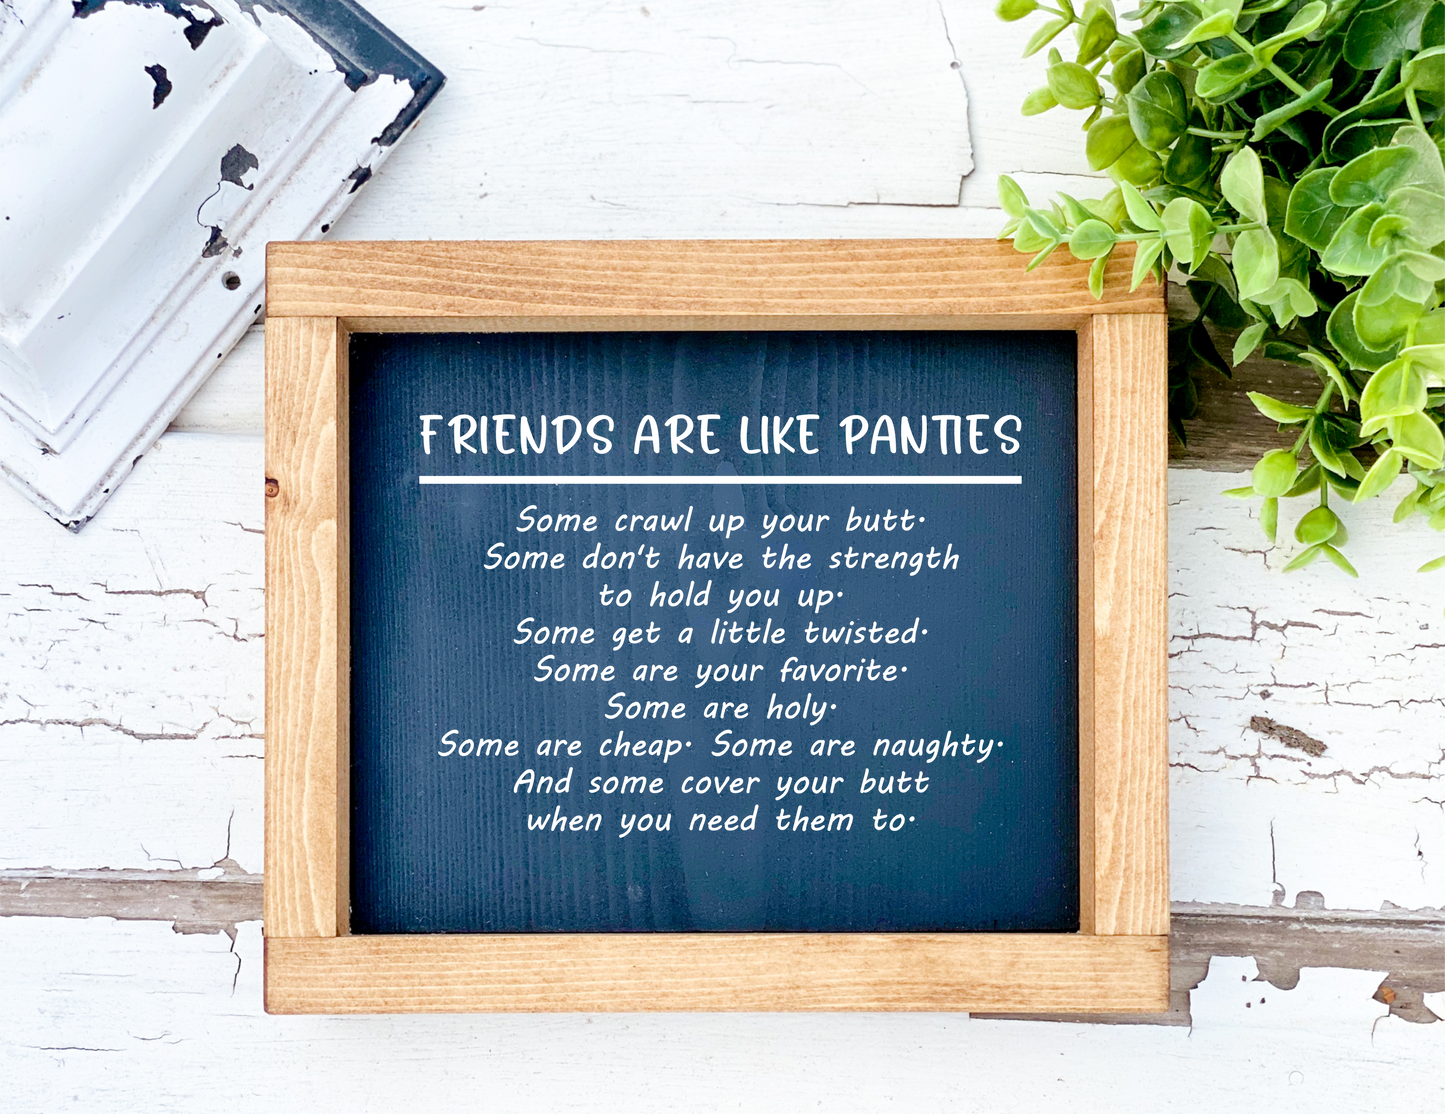 FRIENDS ARE LIKE PANTIES
Some crawl up your butt.
Some don't have the strength
to hold you up.
Some get a little twisted.
Some are your favorite.
Some are holy.
Some are cheap. Some are naughty.
And some cover your butt
when you need them to.